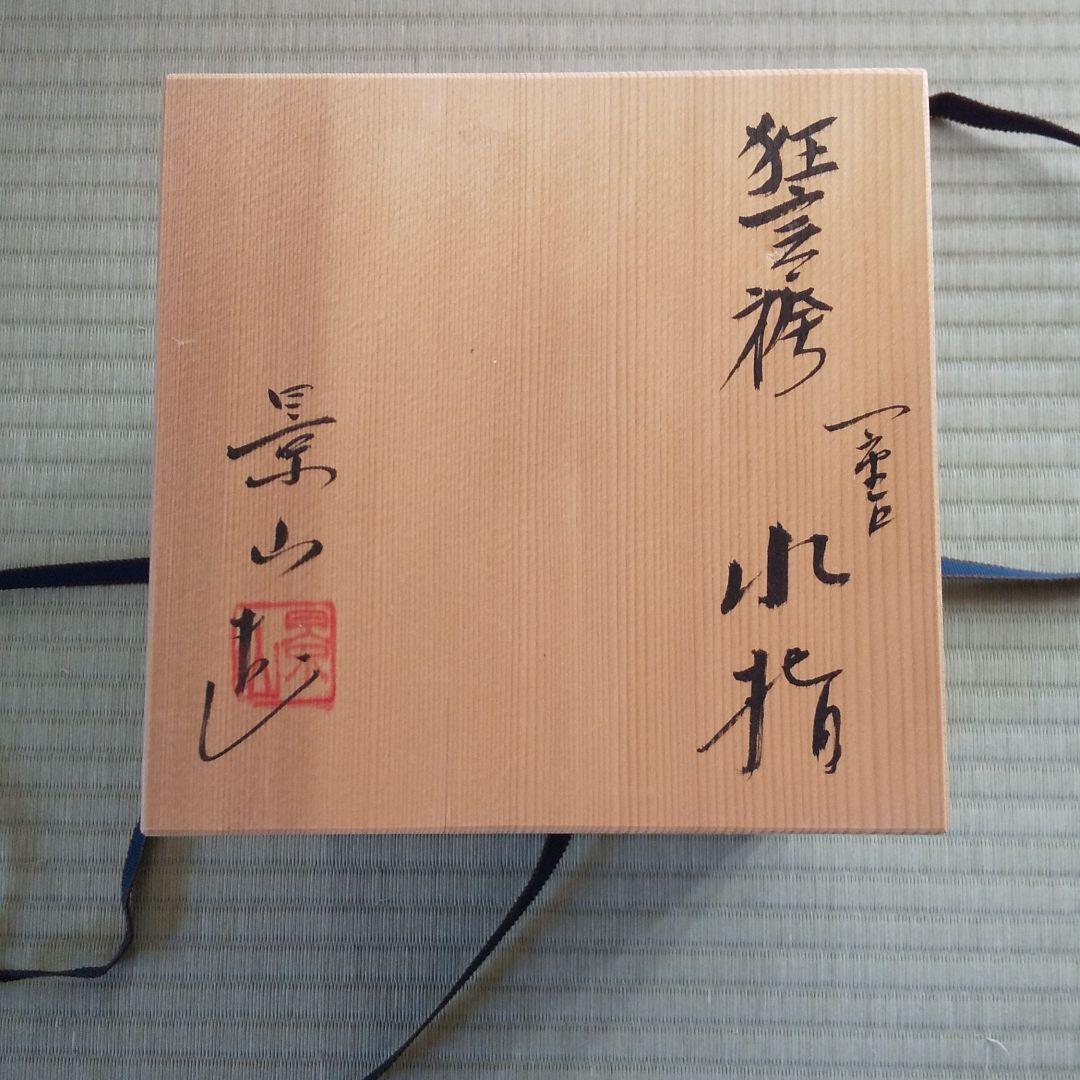 狂言袴
一重口
水指
景山造
景山